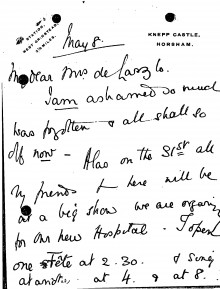 STATION,
WEST GRINSTEAD
KNEPP CASTLE,
HORSHAM.
May 8.
My dear Mrs de Laszlo.
I am ashamed so much
was forgotten & all shall go
off now - Alas on the 31st all
my friends & here will be
at a big show we are
for our new Hospital - I open
one Fête at 2.30. &
at another at 4. & at 8.